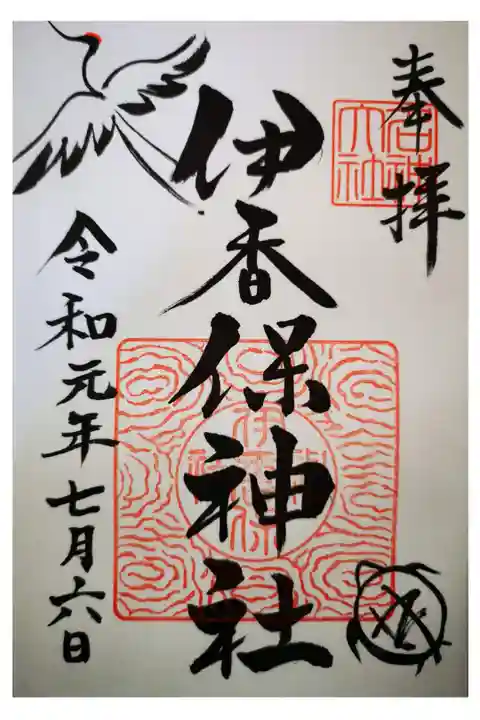 奉拝
伊香保神社
令和元年七月六日